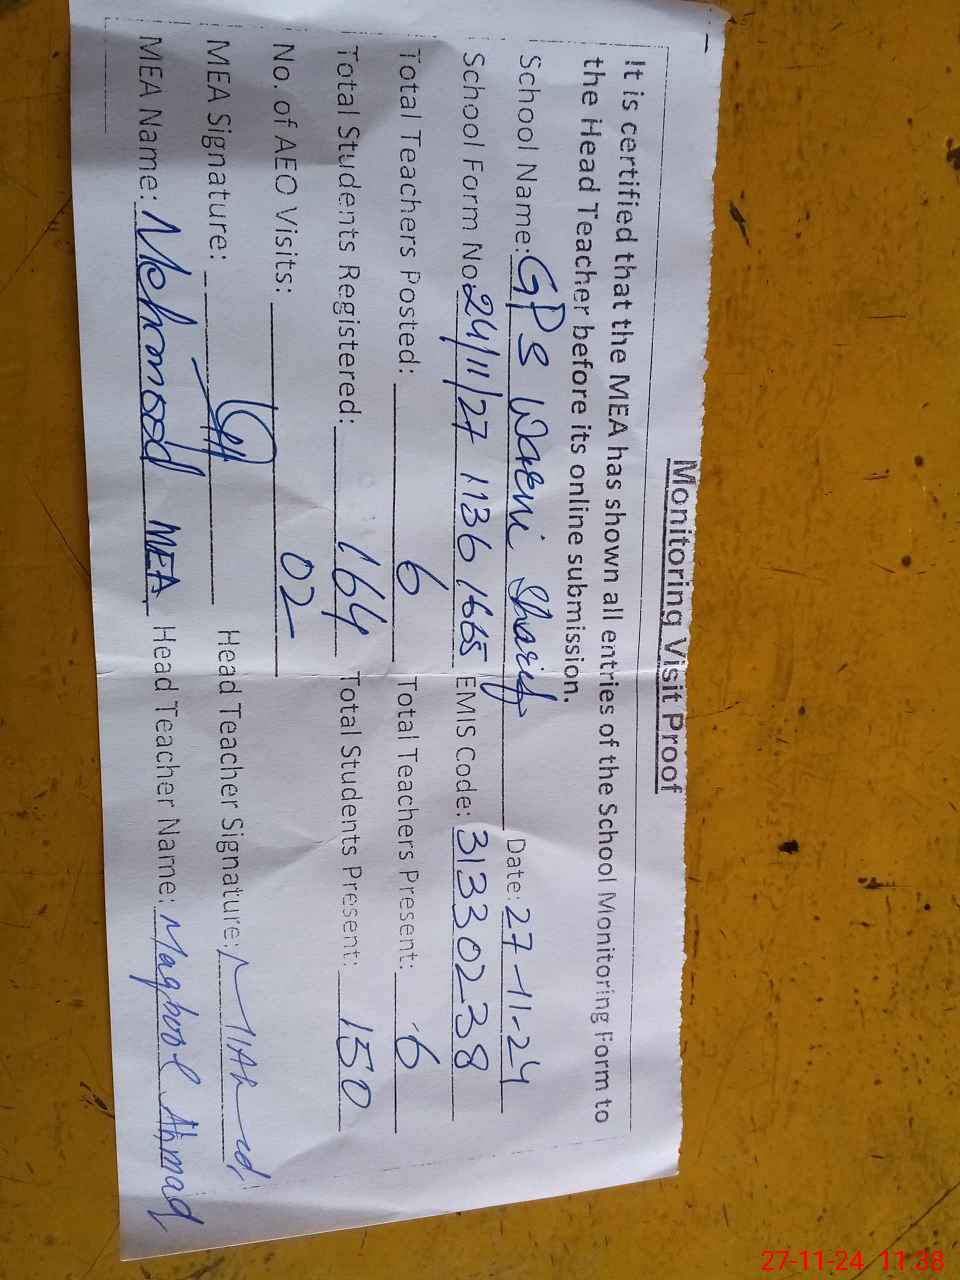 Monitoring Visit Proof
It is certified that the MEA has shown all entries of the School Monitoring Form to
the Head Teacher before its online submission.
School Name: GPS Waeni Sharif Date: 27-11-24
School Form No: 24/11/27 1136 1665 EMIS Code: 31330238
Total Teachers Posted: 6 Total Teachers Present: 6
Total Students Registered: 164 Total Students Present: 150
No. of AEO Visits: 02
MEA Signature: Head Teacher Signature:
MEA Name: Mehmood MEA Head Teacher Name: Maqbool Ahmad
27-11-24 11:38